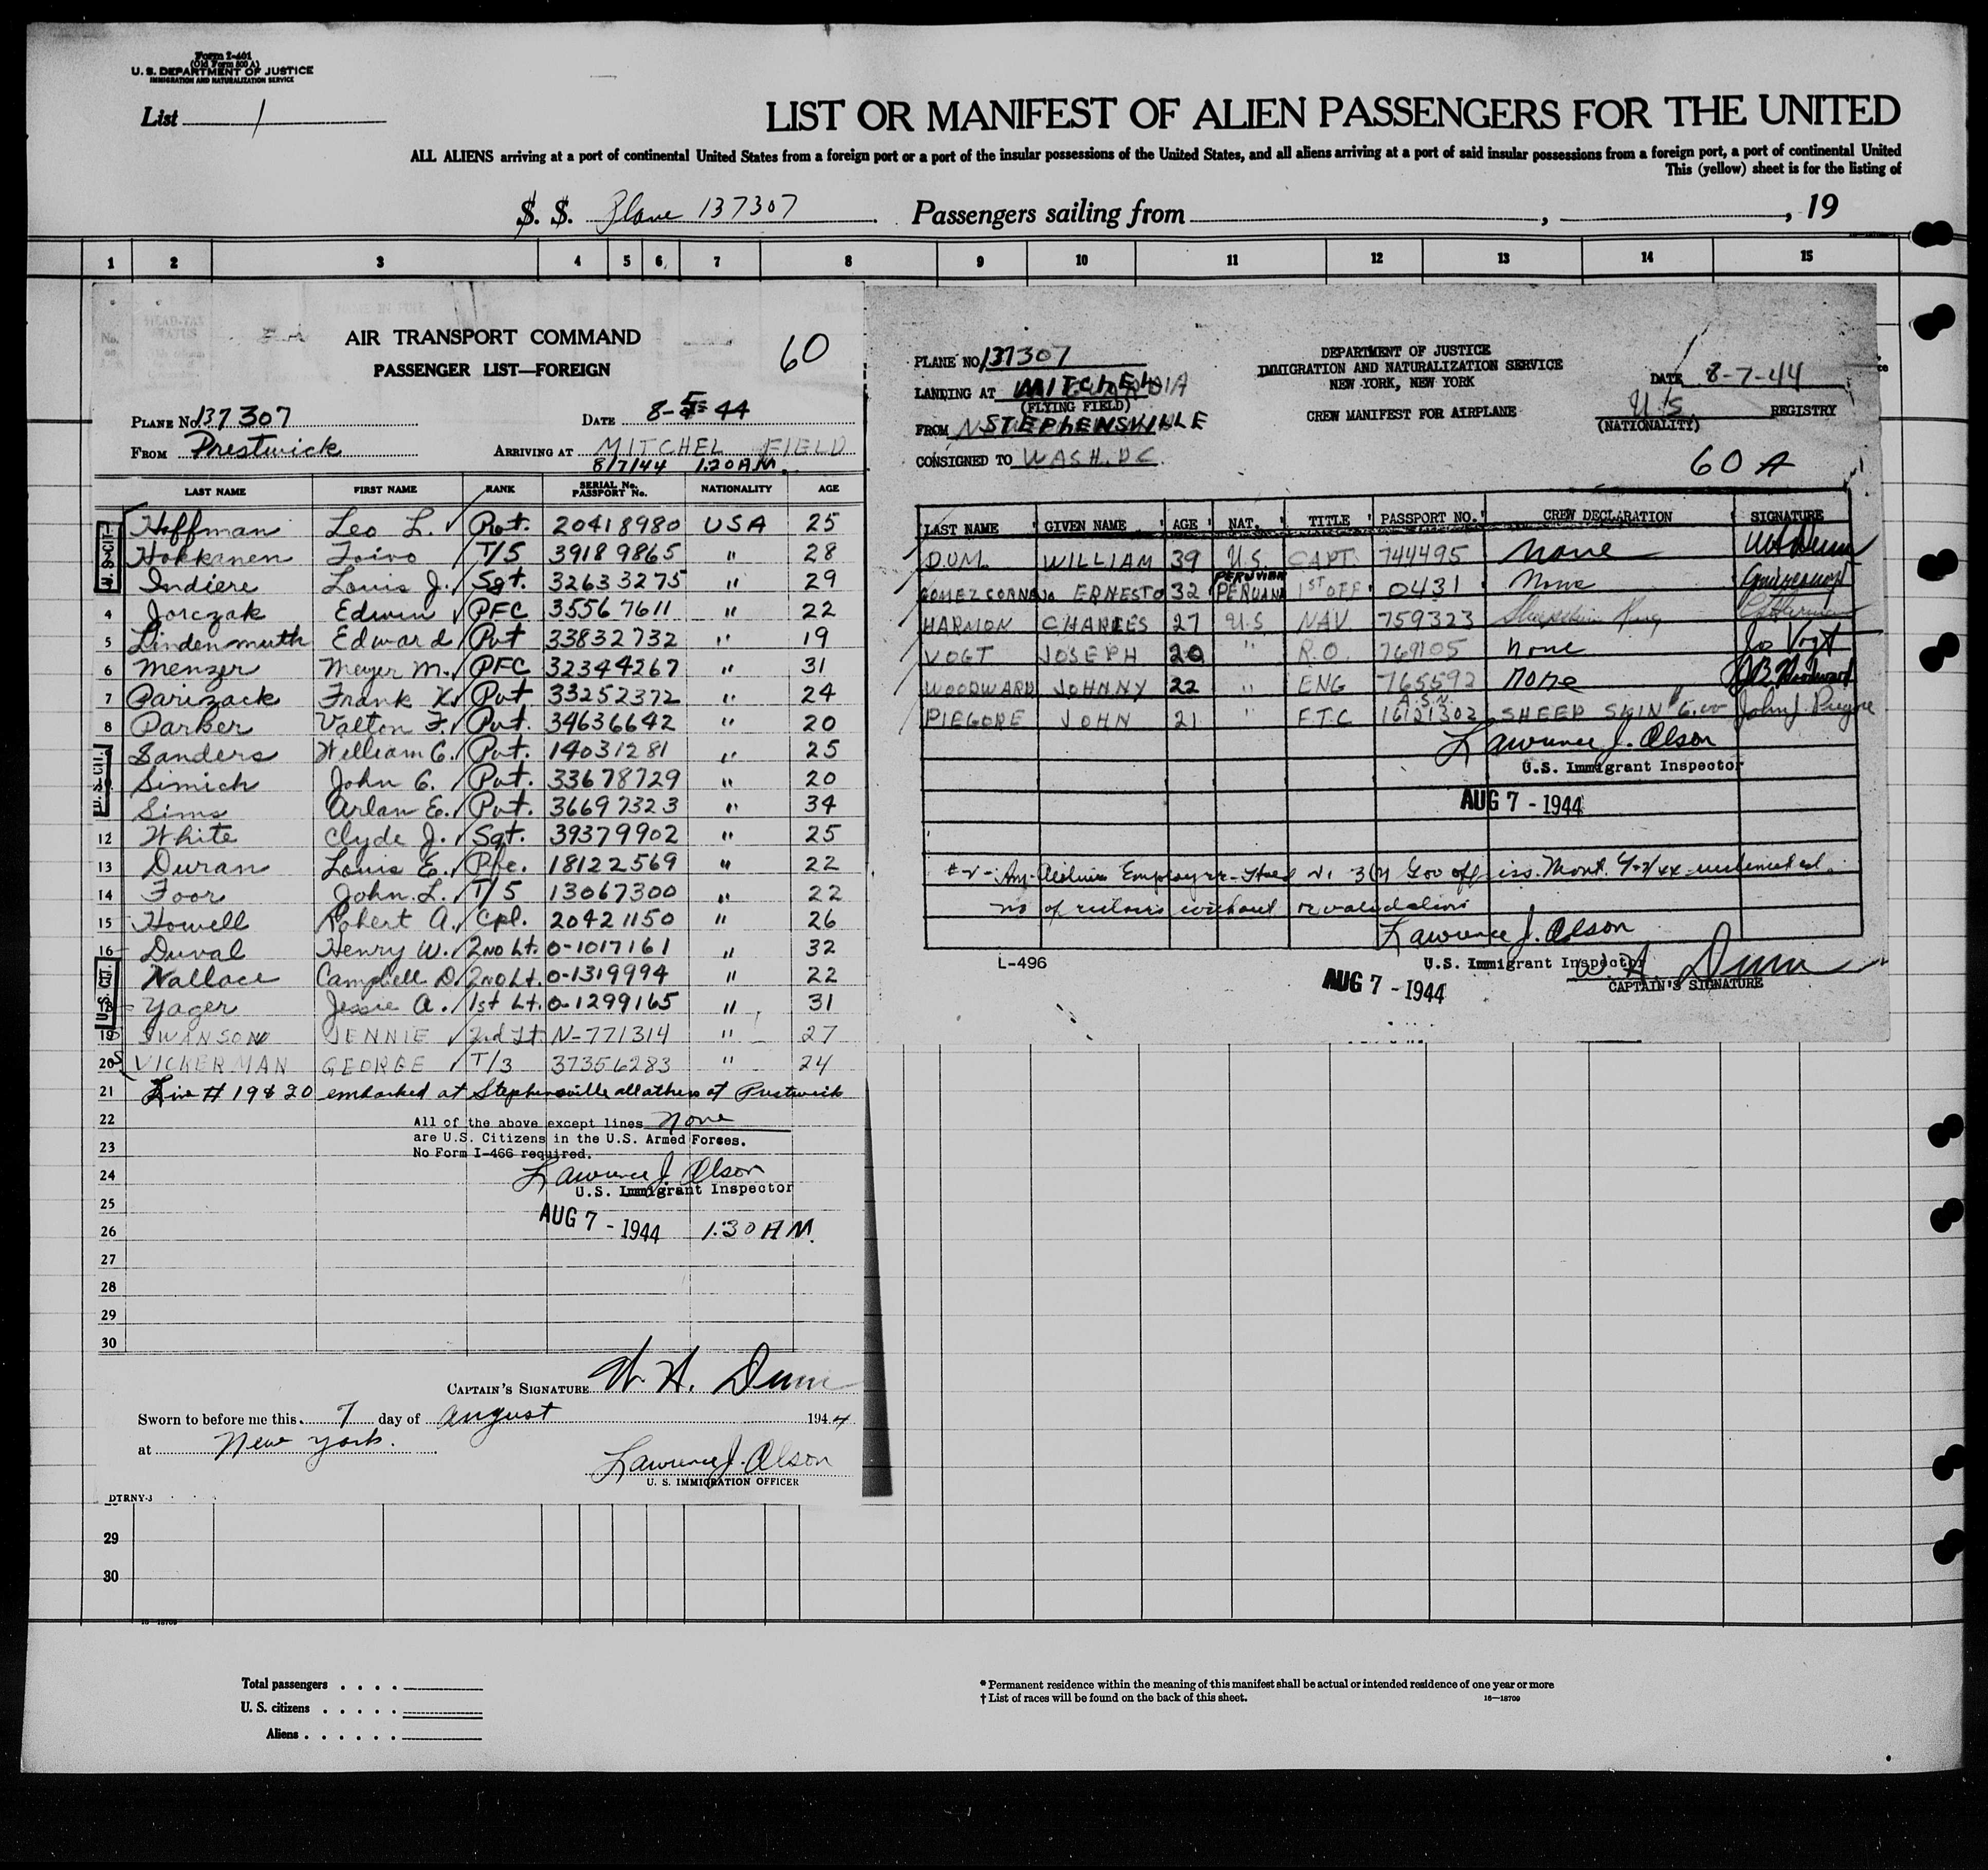 Form I-461
(Old Form 500 A)
U. S. DEPARTMENT OF JUSTICE
IMMIGRATION AND NATURALIZATION SERVICE
List 1
LIST OR MANIFEST OF ALIEN PASSENGERS FOR THE UNITED
ALL ALIENS arriving at a port of continental United States from a foreign port or a port of the insular possessions of the United States, and all aliens arriving at a port of said insular possessions from a foreign port, a port of continental United
This (yellow) sheet is for the listing of
S. S. Plane 137307 Passengers sailing from , , 19
1 2 3 4 5 6 7 8 9 10 11 12 13 14 15
AIR TRANSPORT COMMAND
60
PASSENGER LIST—FOREIGN
PLANE No. 137307 DATE 8-5-44
FROM Prestwick ARRIVING AT MITCHEL FIELD
8/7/44 1:20 A.M.
LAST NAME FIRST NAME RANK SERIAL No. PASSPORT No. NATIONALITY AGE
Hoffman Leo L. Pvt. 20418980 USA 25
Hokkanen Toivo T/5 39189865 " 28
Indiere Louis J. Sgt. 32633275 " 29
4 Jorczak Edwin PFC 35567611 " 22
5 Lindenmuth Edward Pvt 33832732 " 19
6 Menzer Meyer M. PFC 32344267 " 31
7 Parizack Frank X. Pvt 33252372 " 24
8 Parker Valton F. Pvt. 34636642 " 20
Sanders William C. Pvt. 14031281 " 25
Simich John G. Pvt. 33678729 " 20
Sims Arlan E. Pvt. 36697323 " 34
12 White Clyde J. Sgt. 39379902 " 25
13 Duran Louis E. Pfc. 18122569 " 22
14 Foor John L. T/5 13067300 " 22
15 Howell Robert A. Cpl. 20421150 " 26
16 Duval Henry W. 2ND Lt. O-1017161 " 32
Wallace Campbell D. 2ND Lt. O-1319994 " 22
18 Yager Jessie A. 1st Lt. O-1299165 " 31
19 SWANSON JENNIE 2nd Lt N-771314 " 27
20 VICKERMAN GEORGE T/3 37356283 " 24
21 Line # 19 & 20 embarked at Stephensville all others at Prestwick
22 All of the above except lines None
are U.S. Citizens in the U.S. Armed Forces.
23 No Form I-466 required.
24 Lawrence J. Olson
U.S. Immigrant Inspector
25
26 AUG 7 - 1944 1:30 A M.
27
28
29
30
CAPTAIN'S SIGNATURE W. H. Dunn
Sworn to before me this 7 day of August 1944
at New York.
Lawrence J. Olson
U. S. IMMIGRATION OFFICER
DTRNY-J
U. S. CIT.
U. S. CIT.
U. S. CIT.
PLANE NO. 137307
LANDING AT MITCHEL
(FLYING FIELD)
FROM STEPHENSVILLE
CONSIGNED TO WASH. DC.
DEPARTMENT OF JUSTICE
IMMIGRATION AND NATURALIZATION SERVICE
NEW YORK, NEW YORK
CREW MANIFEST FOR AIRPLANE
DATE 8-7-44
U.S. REGISTRY
(NATIONALITY)
60 A
LAST NAME GIVEN NAME AGE NAT. TITLE PASSPORT NO. CREW DECLARATION SIGNATURE
DUM WILLIAM 39 U.S. CAPT. 744495 None
GOMEZ CORNEJO ERNESTO 32 PERUVIAN PERUANA 1ST OFF 0431 None
HARMON CHARLES 27 U.S NAV 759323
VOGT JOSEPH 20 " R.O. 769105 None Jo Vogt
WOODWARD JOHNNY 22 " ENG 765592 None
PIEGORE JOHN 21 " F.T.C A.S.N. 16121302 SHEEP SKIN $6.00
Lawrence J. Olson
U.S. Immigrant Inspector
AUG 7 - 1944
Lawrence J. Olson
L-496 U.S. Immigrant Inspector
AUG 7 - 1944
W. H. Dunn
CAPTAIN'S SIGNATURE
29
30
Total passengers
U. S. citizens
Aliens
* Permanent residence within the meaning of this manifest shall be actual or intended residence of one year or more
† List of races will be found on the back of this sheet. 16—18709